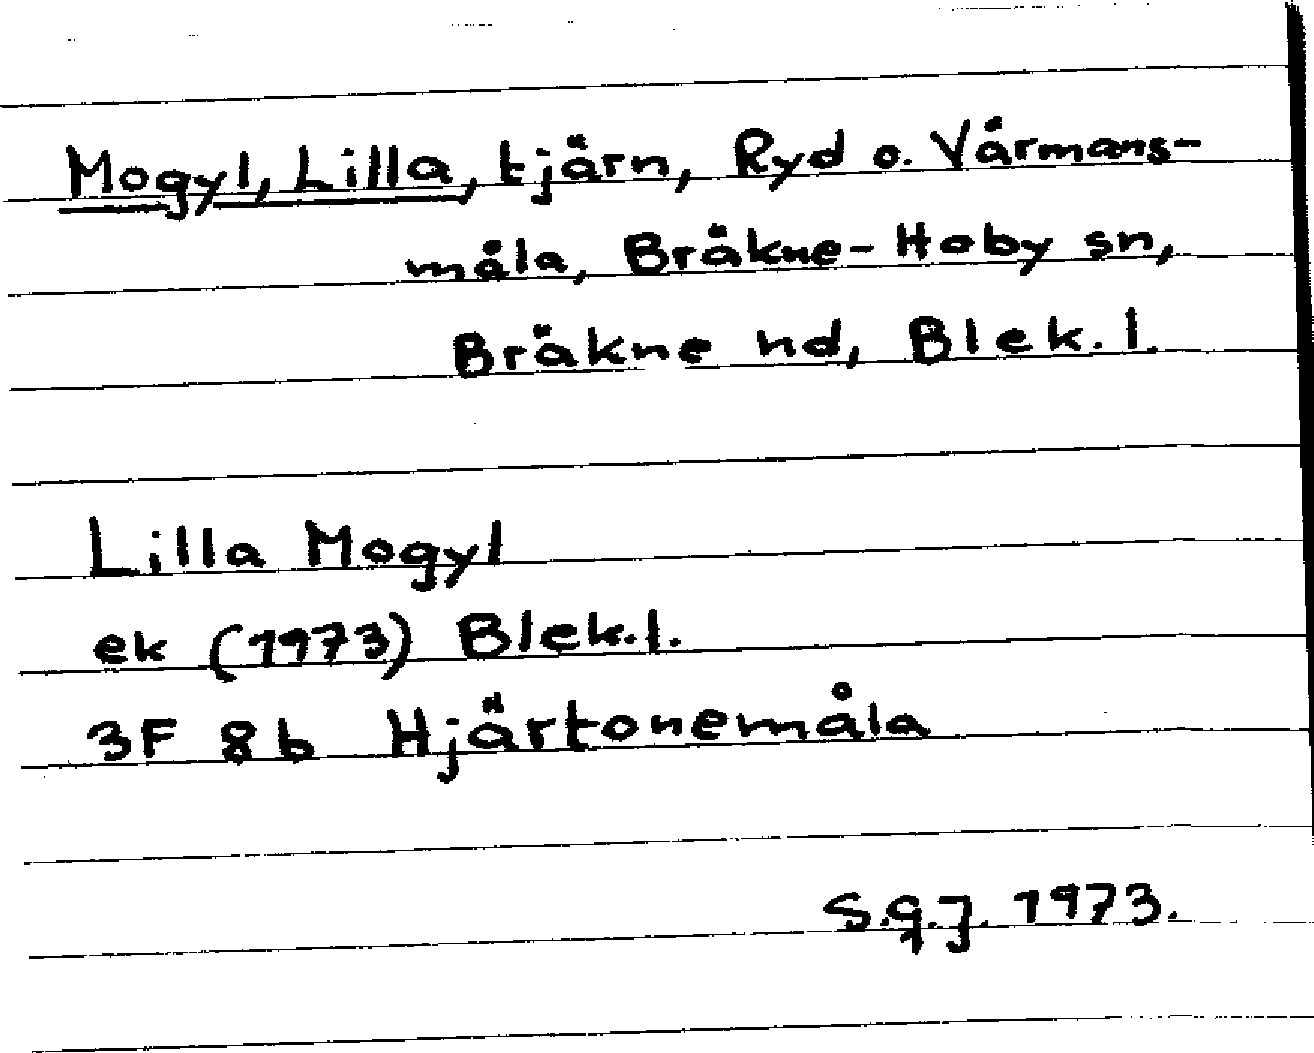 Mogyl, Lilla, tjärn, Ryd o. Vårmans-
måla, Bräkne-Hoby sn,
Bräkne hd, Blek. l.
Lilla Mogyl
ek (1973) Blek.l.
3F 8b Hjärtonemåla
S.g.J. 1973.